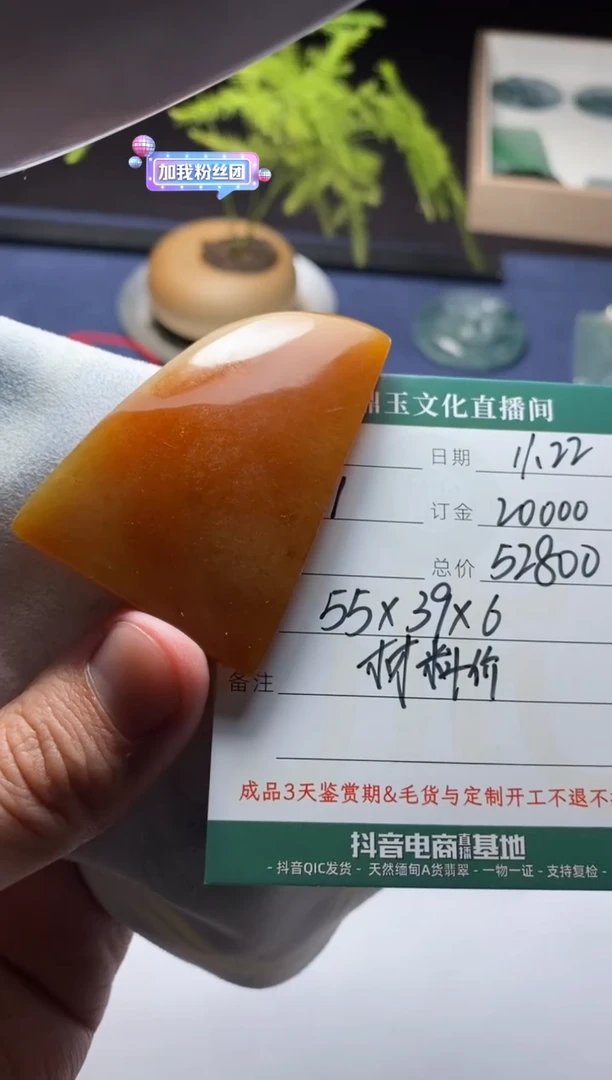 加我粉丝团
玉文化直播间
日期 11.22
1 订金 20000
总价 52800
55×39×6
材料价
备注
成品3天鉴赏期&毛货与定制开工不退不
抖音电商直播基地
- 抖音QIC发货 - 天然缅甸A货翡翠 - 一物一证 - 支持复检 -